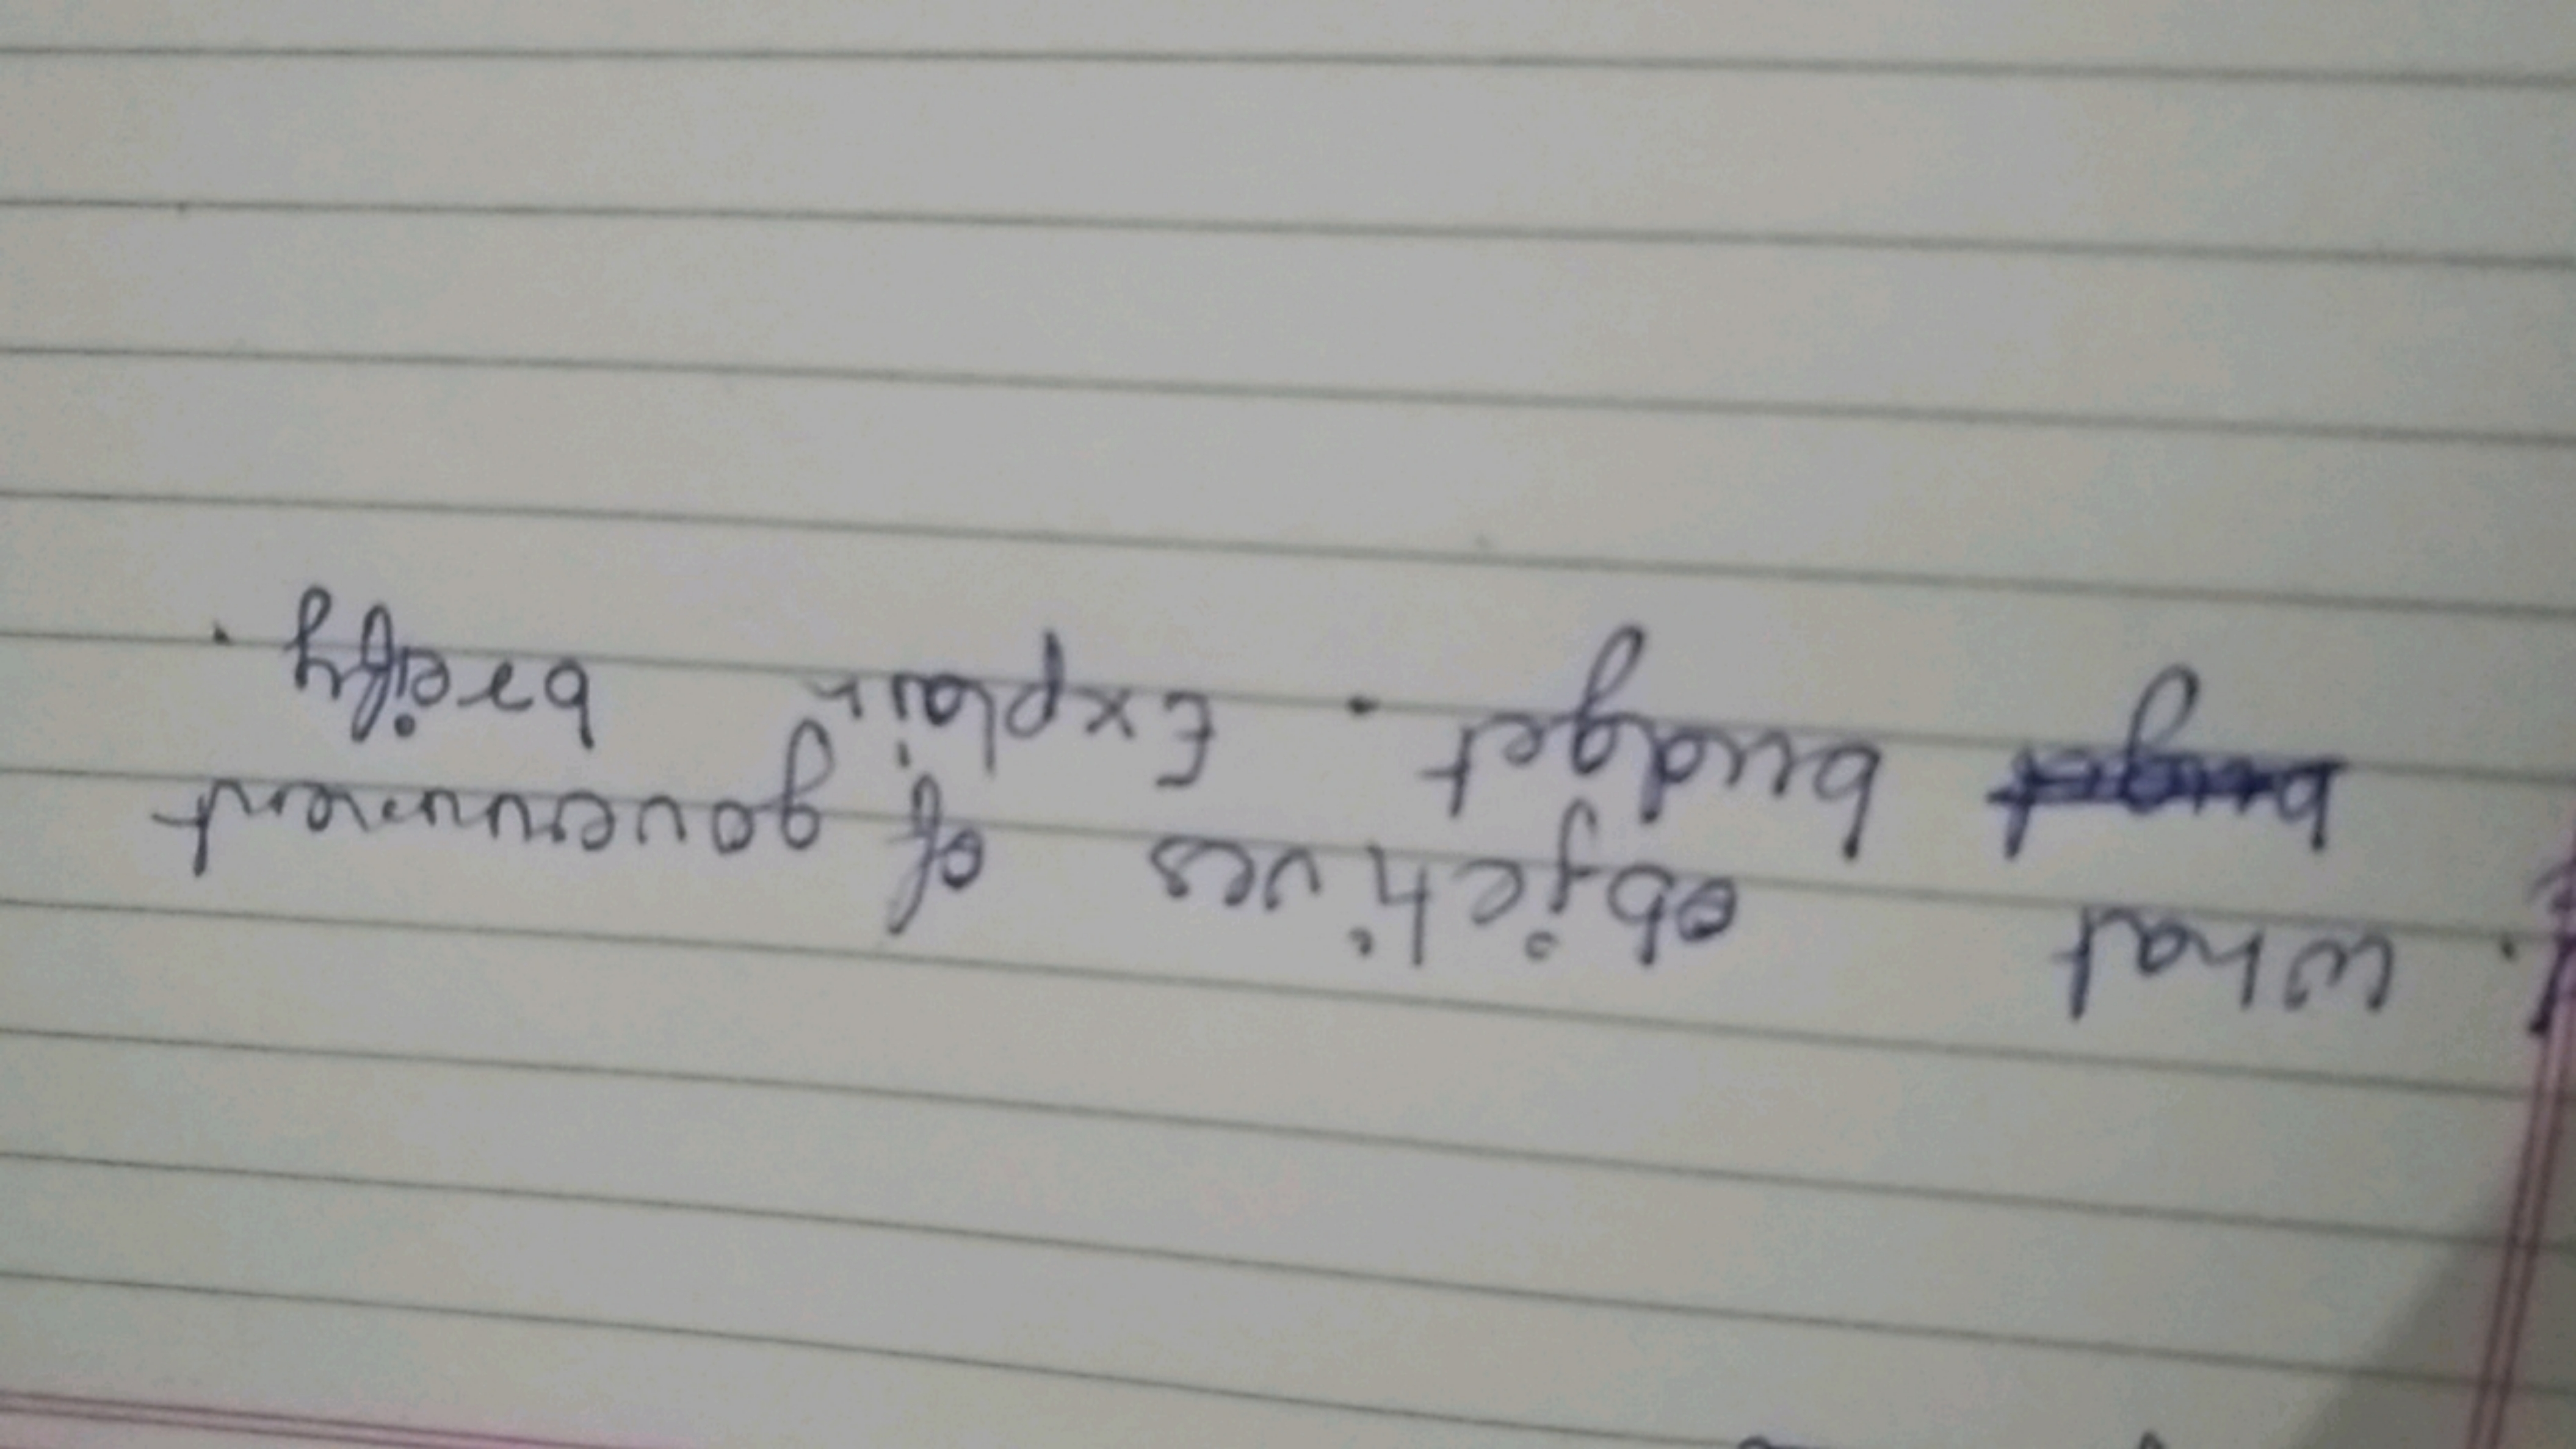 . What objectives of government
budget . Explain breifly .